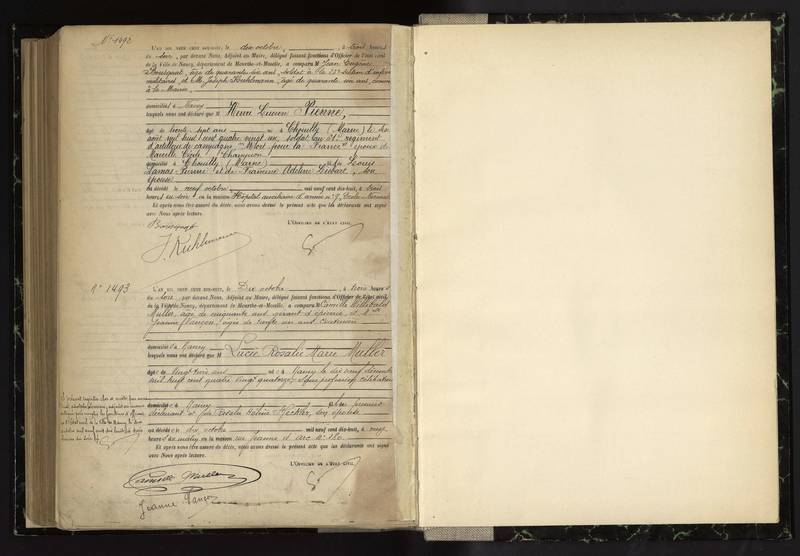 N° 1492
L'an mil neuf cent dix-huit, le dix octobre, à trois heures
du soir, par devant Nous, Adjoint au Maire, délégué faisant fonctions d'Officier de l'état civil
de la Ville de Nancy, département de Meurthe-et-Moselle, a comparu M Jean Eugène
âgé de quarante six ans, soldat à la 23e section d'infirmiers
militaires et M. Joseph Kuhlmann, âgé de quarante un ans,
à la Mairie,
domiciliés à Nancy
lesquels nous ont déclaré que M Henri Lucien Pienne,
âgé de trente sept ans né à Chouilly (Marne) le dix
août mil huit cent quatre vingt un, soldat au 61e régiment
d'artillerie de campagne, "Mort pour la France" époux de
Marcelle Cécile Champion
domicilié à Chouilly (Marne) fils de Louis
Pienne et de Francine Adeline Liébart, son
épouse
est décédé le neuf octobre mil neuf cent dix-huit, à trois
heures du soir, en la maison Hôpital auxiliaire d'armée n° 7, École Normale
Et après nous être assuré du décès, nous avons dressé le présent acte que les déclarants ont signé
avec Nous après lecture.
L'Officier de l'état civil
J. Kuhlmann
N° 1493
L'an mil neuf cent dix-huit, le Dix octobre, à trois heures
du soir, par devant Nous, Adjoint au Maire, délégué faisant fonctions d'Officier de l'état civil
de la Ville de Nancy, département de Meurthe-et-Moselle, a comparu M Camille Willibald
Muller, âgé de cinquante ans gérant d'épicerie, et Melle
Jeanne Plançon, âgée de trente un ans
domiciliés à Nancy
lesquels nous ont déclaré que M Lucie Rosalie Marie Muller
âgée de vingt trois ans née à Nancy le dix neuf décembre
mil huit cent quatre vingt quatorze, sans profession, célibataire
domiciliée à Nancy fille du premier
déclarant et de Rosalie Hélène Keckler, son épouse
est décédée le dix octobre mil neuf cent dix-huit, à onze
heures du matin, en la maison rue Jeanne d'arc n° 150
Et après nous être assuré du décès, nous avons dressé le présent acte que les déclarants ont signé
avec Nous après lecture.
L'Officier de l'état civil
Camille Muller
Jeanne Plançon